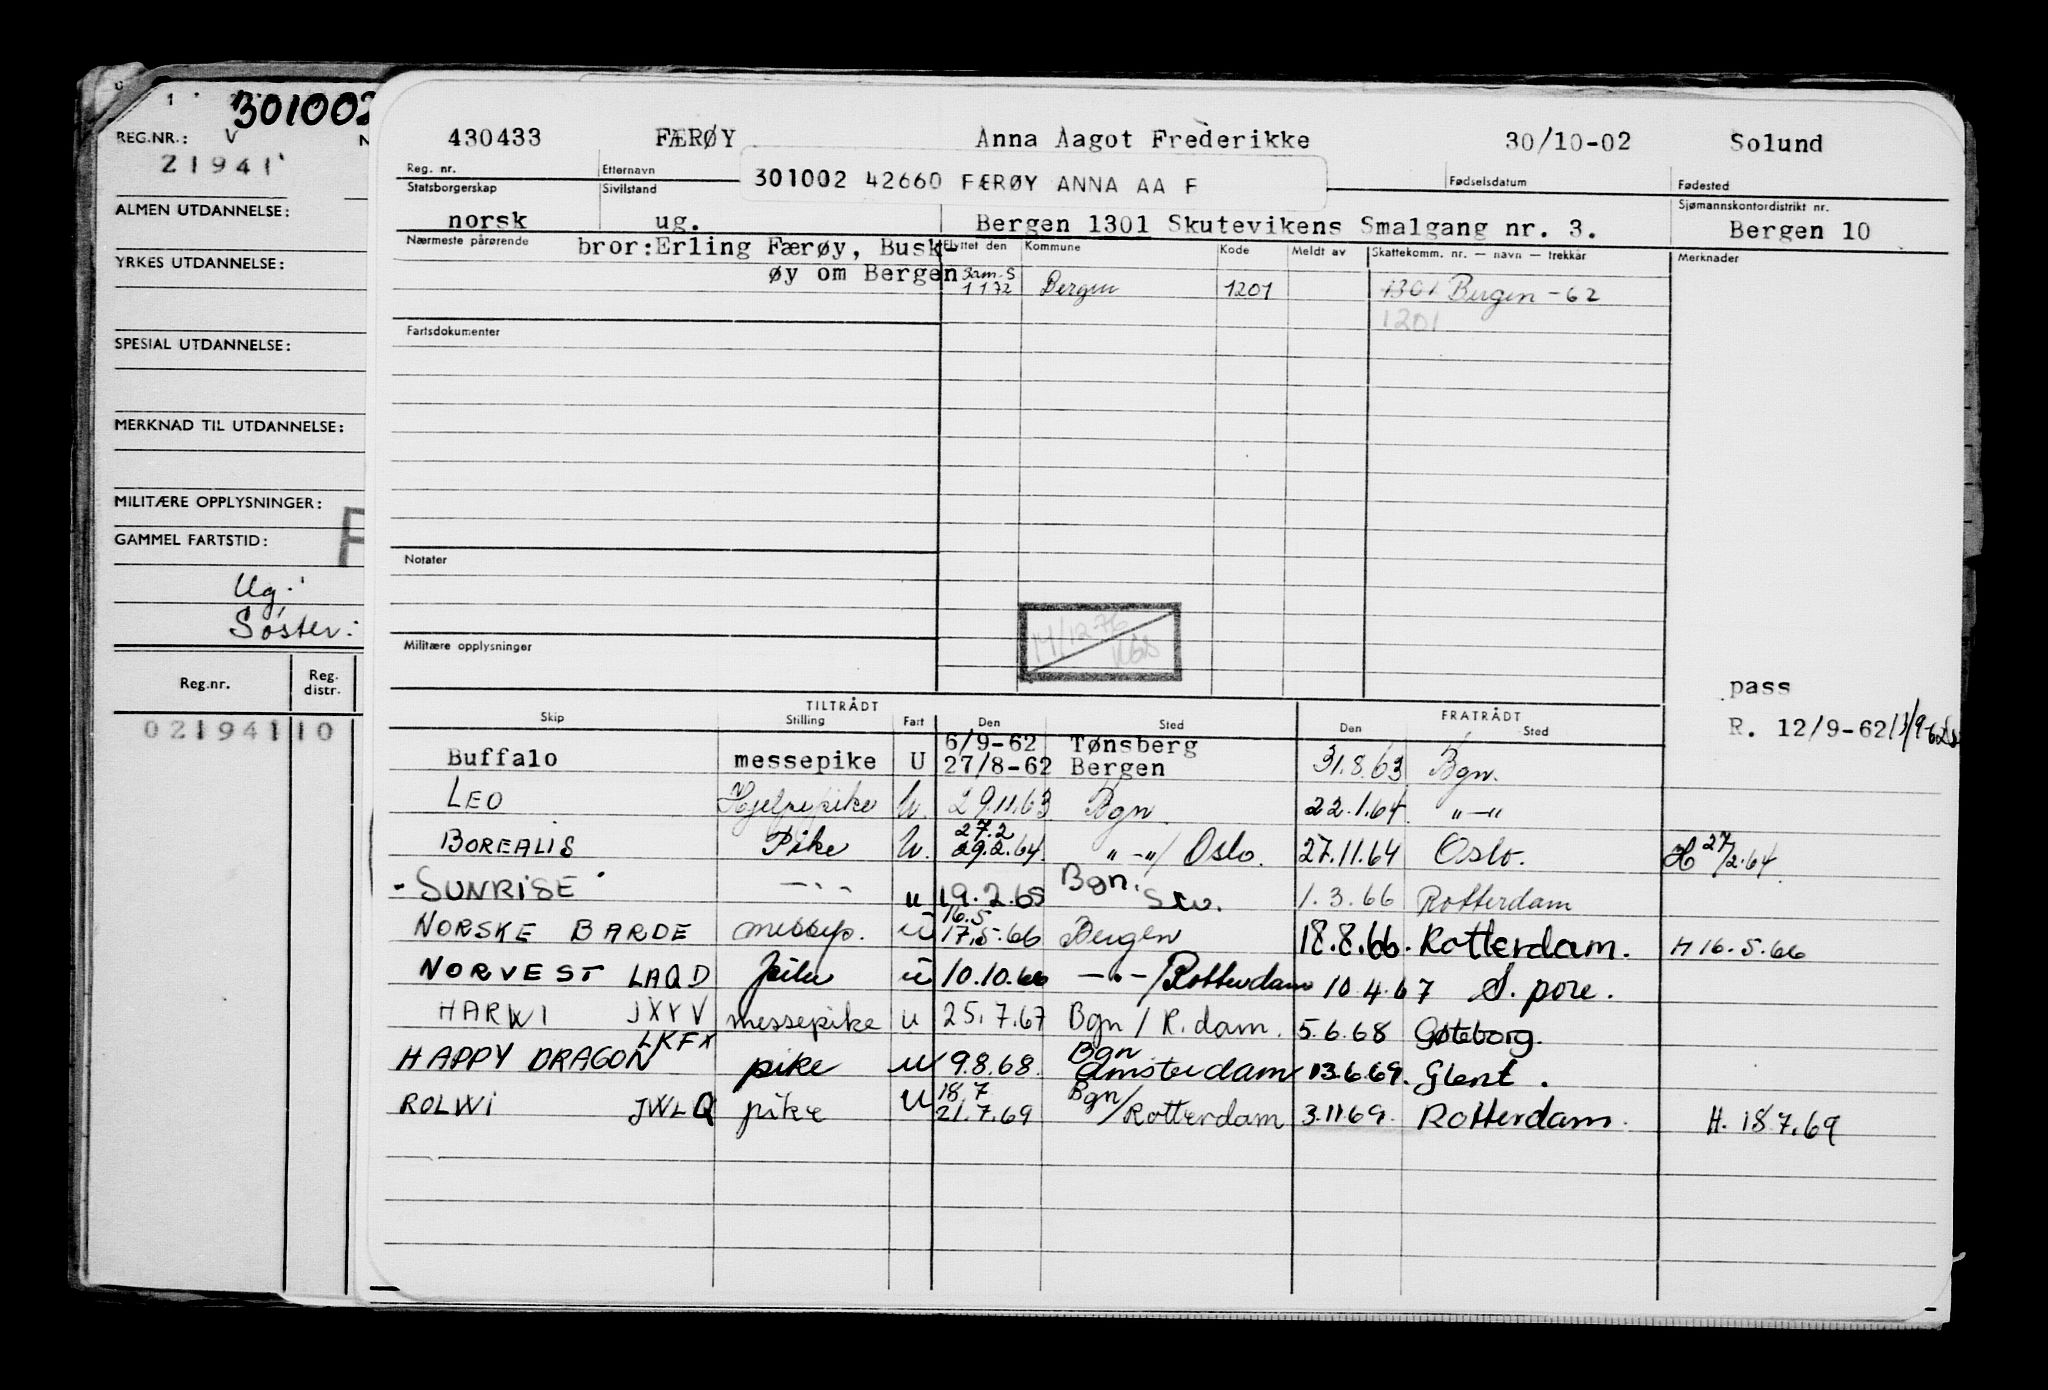 301002
REG.NR.: V N
21941
ALMEN UTDANNELSE:
YRKES UTDANNELSE:
SPESIAL UTDANNELSE:
MERKNAD TIL UTDANNELSE:
MILITÆRE OPPLYSNINGER:
GAMMEL FARTSTID:
Ug.
Søster:
Reg.nr. Reg. distr.
0219411 10
430433 FÆRØY Anna Aagot Frederikke 30/10-02 Solund
Reg. nr. Etternavn Fødselsdatum Fødested
301002 42660 FÆRØY ANNA AA F
Statsborgerskap Sivilstand Sjømannskontordistrikt nr.
norsk ug. Bergen 1301 Skutevikens Smalgang nr. 3. Bergen 10
Nærmeste pårørende bror:Erling Færøy, Busk- Flyttet den Kommune Kode Meldt av Skattekomm. nr. — navn — trekkår Merknader
øy om Bergen
1 1 72 Bergen 1201 1301 Bergen -62
1201
Fartsdokumenter
Notater
14/12-76
Militære opplysninger
pass
R. 12/9-62
TILTRÅDT FRATRÅDT
Skip Stilling Fart Den Sted Den Sted
6/9-62 Tønsberg
Buffalo messepike U 27/8-62 Bergen 31.8.63 Bgn.
LEO Hjelpepike U. 29.11.63 Bgn. 22.1.64 "—"
27.2
BOREALIS Pike U. 29.2.64 "—"/ Oslo. 27.11.64 Oslo. H 27/2.64
- SUNRISE —.- u 19.2.65 Bgn. 1.3.66 Rotterdam
16.5
NORSKE BARDE messep. u 17.5.66 Bergen 18.8.66. Rotterdam. H 16.5.66
NORVEST LAQD pike u 10.10.66 —"—/Rotterdam 10 4.67 S. pore.
HARWI JXYV messepike u 25.7.67 Bgn / R.dam. 5.6.68 Gøteborg.
LKFX Bgn
HAPPY DRAGON pike u 9.8.68. Amsterdam 13.6.69. Gent.
18.7 Bgn/
ROLWI JWLQ pike U 21.7.69 Rotterdam 3.11 69. Rotterdam. H. 18.7.69